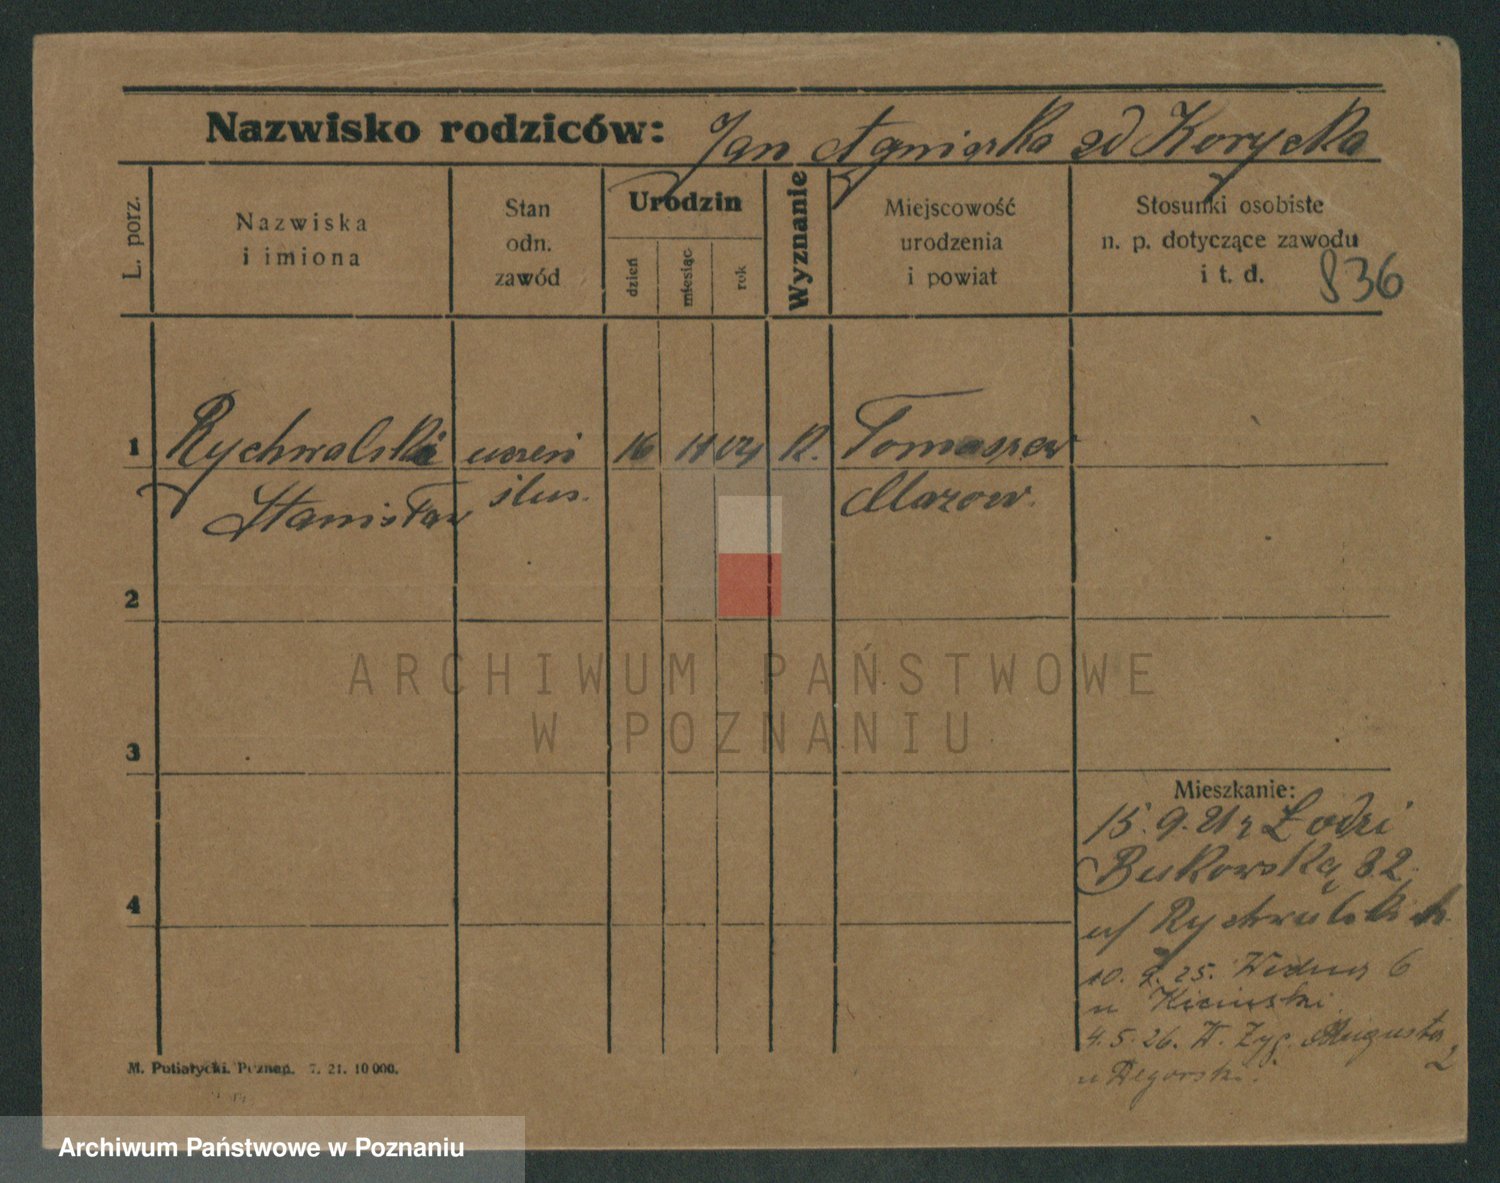 Nazwisko rodziców: Jan Agnieszka zd Korycka
L. porz.
Nazwiska
i imiona
Stan
odn.
zawód
Urodzin
dzień
miesiąc
rok
Wyznanie
Miejscowość
urodzenia
i powiat
Stosunki osobiste
n. p. dotyczące zawodu
i t. d.
836
1
Rychwalski
uczeń
16
04
R.
Tomaszew
Stanisław
ślus.
Mazow.
2
ARCHIWUM PAŃSTWOWE
W POZNANIU
3
Mieszkanie:
15.9.21 z Łodzi
Bukowska 82
4
u/ Rychwalskich
10. 9. 25. 6
u Kiciński
4.5.26. W. Zyg. Augusta
2
u
M. Putiatycki. Poznań. 7. 21. 10 000.
Archiwum Państwowe w Poznaniu